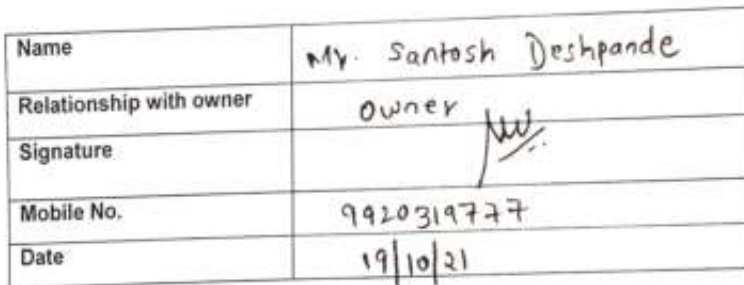 Name Mr. Santosh Deshpande
Relationship with owner owner
Signature
Mobile No. 9920319777
Date 19/10/21